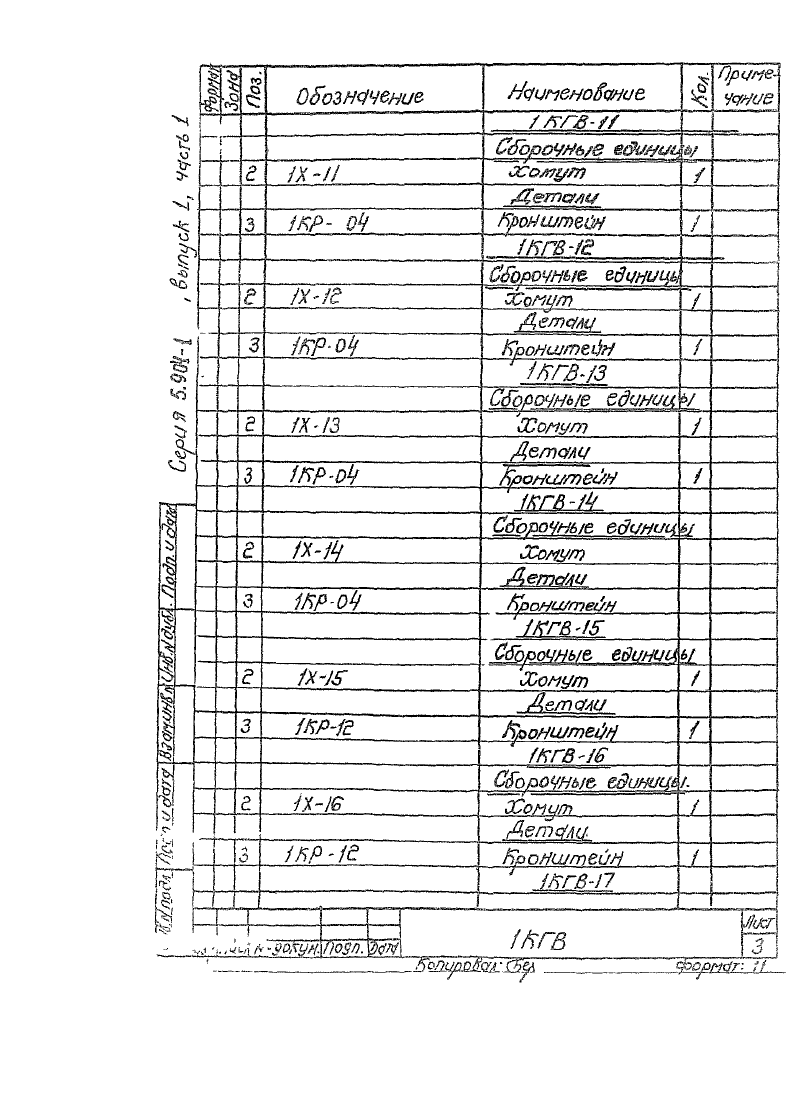 Формат Зона Поз. Обозначение Наименование Кол. Приме-
чание
1КГВ-11
Сборочные единицы
2 1Х-11 Хомут 1
Детали
3 1КР- 04 Кронштейн 1
1КГВ-12
Сборочные единицы
2 1Х-12 Хомут 1
Детали
3 1КР-04 Кронштейн 1
1КГВ-13
Сборочные единицы
2 1Х-13 Хомут 1
Детали
3 1КР-04 Кронштейн 1
1КГВ-14
Сборочные единицы
2 1Х-14 Хомут
Детали
3 1КР-04 Кронштейн
1КГВ-15
Сборочные единицы
2 1Х-15 Хомут 1
Детали
3 1КР-12 Кронштейн 1
1КГВ-16
Сборочные единицы.
2 1Х-16 Хомут 1
Детали
3 1КР-12 Кронштейн 1
1КГВ-17
Серия 5.904-1 , выпуск 1, часть 1
Подп. и дата
Инв.N дубл.
Взам.инв.N
Подп. и дата
N подл.
докум. Подп. Дата
1КГВ
Лист
3
Копировал:
Формат: 11